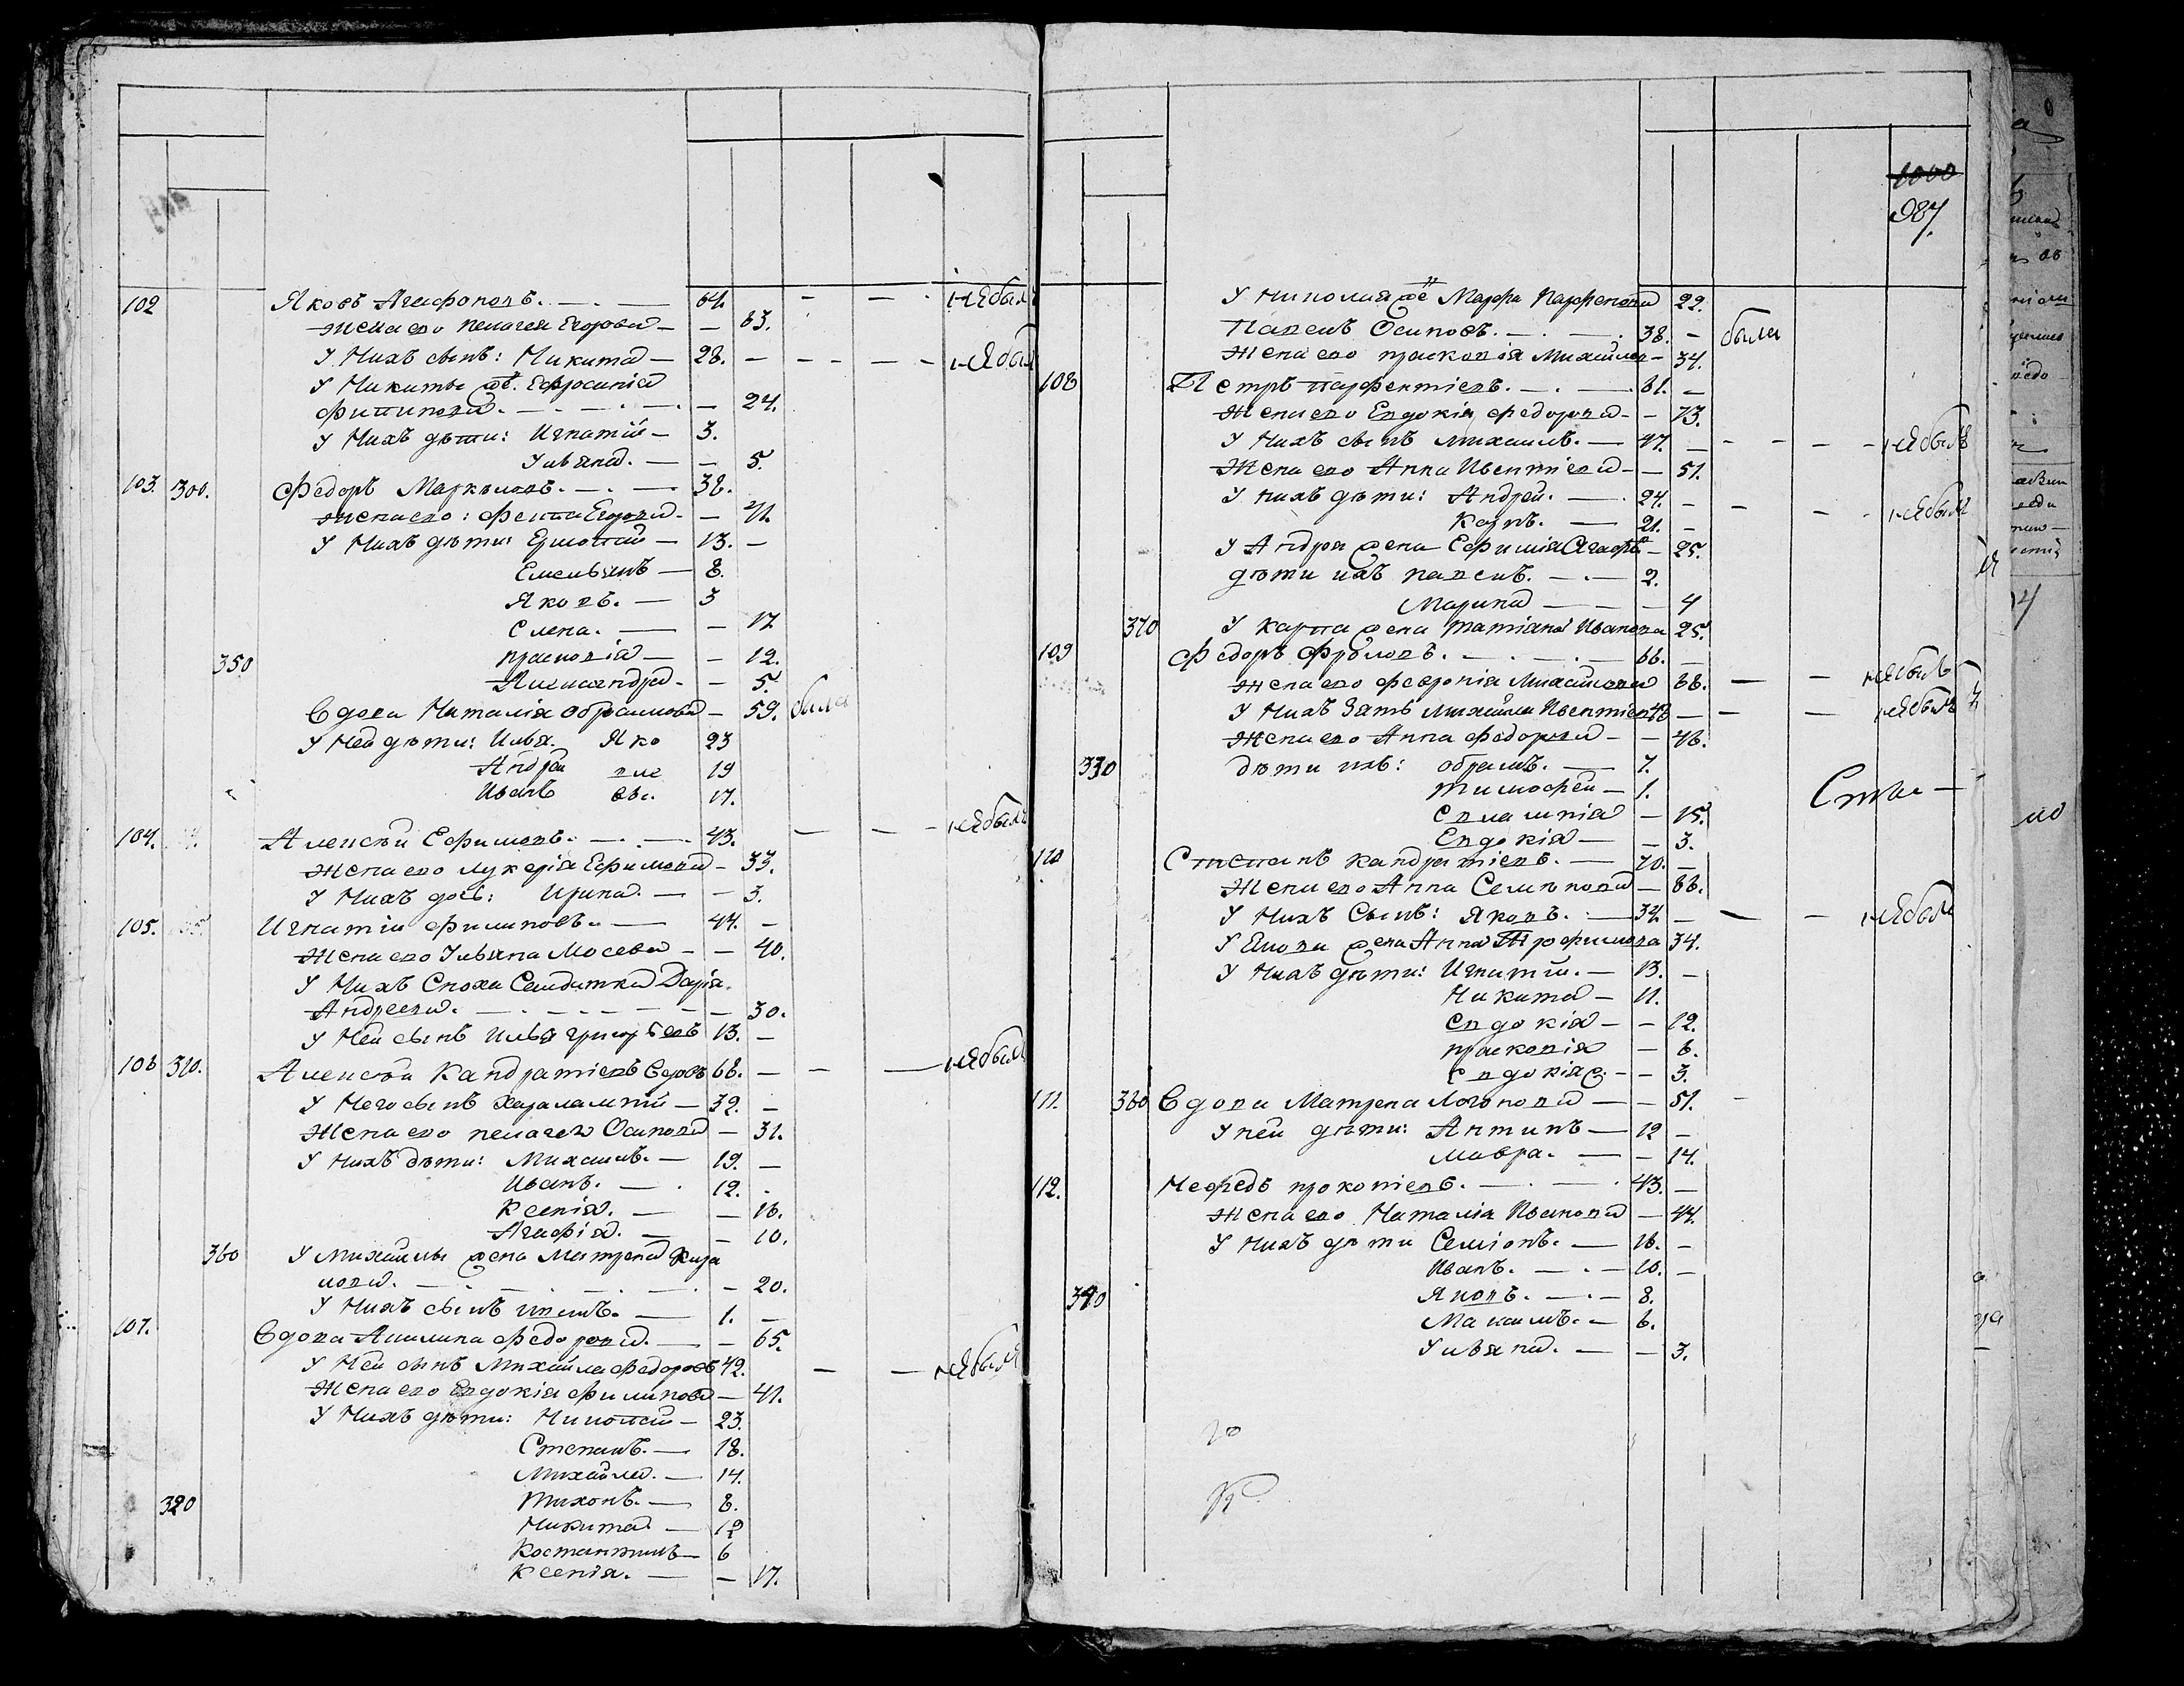 102 Яковъ Агафоновъ. 64. - - . небылъ
жена его Пелагея Егорова - - 63.
У Нихъ сынъ: Никита - 28. - - - - - небыл
У Никиты же. Ефросинiа
Филипова. - 24.
У Нихъ дѣти: Игнатiй - 3.
Ульяна. - - 5.
103. 300. Федоръ Маркеловъ. - 38.
жена ево: Фекла Егорова. - 41.
У Нихъ дѣти: Ермолай - 13. -
Емельянъ - 8.
Яковъ. - 3
Елена. - - 17.
350 прасковiа - - 12.
Александра. - - 5.
Вдова Наталiя Обрамова - 59. была
У Ней дѣти: Илья. Яко 23
Андрей вле 19
Иванъ вы. 17.
104. Алексѣй Ефимовъ. - 43. - - - небылъ
жена ево Лукерiя Ефимова - 33.
У Нихъ дочь: Ирина. - - 3.
105. Игнатiй Филиповъ. - 44. -
Жена ево Ульяна Мосева - - 40.
У Нихъ Сноха Салдатка Дарiя.
Андреева. - 30.
У Ней сынъ Илья Григорьевъ 13. -
106 310. Алексѣй Кандратiевъ Вдовъ 68. - - - небылъ
У Него сынъ Харалампiй - 32. -
Жена ево пелагея Осипова - 31.
У Нихъ дѣти: Михаилъ. - 19. -
Иванъ. - . 12. .
Ксенiя. - - 16.
Агафiя. - - 10.
360 У Михайлы жена Матрена
лова. - 20.
У Нихъ сынъ - 1. -
107. Вдова Акилина Федорова. - - 65.
У Ней сынъ Михайла Федоровъ 42. - - небылъ
Жена ево Евдокiя Филипова - 41.
У Нихъ дѣти: Николай - 23.
Степанъ. - 18.
Михайла. - 14.
320 Тихонъ. - 8.
Никита. - 12
Костантинъ - 6
Ксенiя. - - 17.
1000
987.
У Николая же Марфа Парфенова 22.
Павелъ Осиповъ. - . - . 38. - была
Жена ево прасковiя Михайлов - 34.
108 Петръ Парфентiевъ. - . - . 61. -
Жена ево Евдокiя Федорова - - 73.
У Нихъ сынъ Михаилъ. - 47. - - - - - небылъ
Жена ево Анна Ивентiева - - 51.
У нихъ дѣти: Андрей. - . 24. - - - . небылъ
Карпъ. - 21. -
У Андрея жена Ефимiя - 25.
дѣти ихъ павелъ. - . - 2.
Марина - - - 4
370 У Карпа жена татiана Иванова 25.
109 Федоръ Фроловъ. - . - . - 66. -
жена ево Февронiя Михайлова 68. - - небылъ
У Нихъ Зять Михайла Ивентiевъ 48 - - - небылъ
Жена ево Анна Федорова - - 46.
330 дѣти ихъ: обрамъ. - 7.
тимофей - 1.
Евлампiа - 15.
Евдокiа - - 3.
110 Степанъ Кандратiевъ. - 70. -
Жена ево Анна Семионова - 66.
У Нихъ Сынъ: Яковъ. - 34. - - - небыл
У Якова жена Анна Трофимова 34.
У Нихъ дѣти: Игнатiй. - 13. -
Никита - 11.
Евдокiа - - 12.
прасковiя - 6.
Евдокiя - - 3.
111. 380 Вдова Матрена Логонова - - 51. -
У ней дѣти: Антипъ - 12 -
Мавра. - - 14.
112. Нефедъ прокопiевъ. - . - . 43. -
Жена ево Наталiя Иванова - 44.
У Нихъ дѣти Семiонъ. - 16. -
Иванъ. - . - 10. -
340 Яковъ. - . - 8.
Максимъ. - 6.
Ульяна. - - 3.